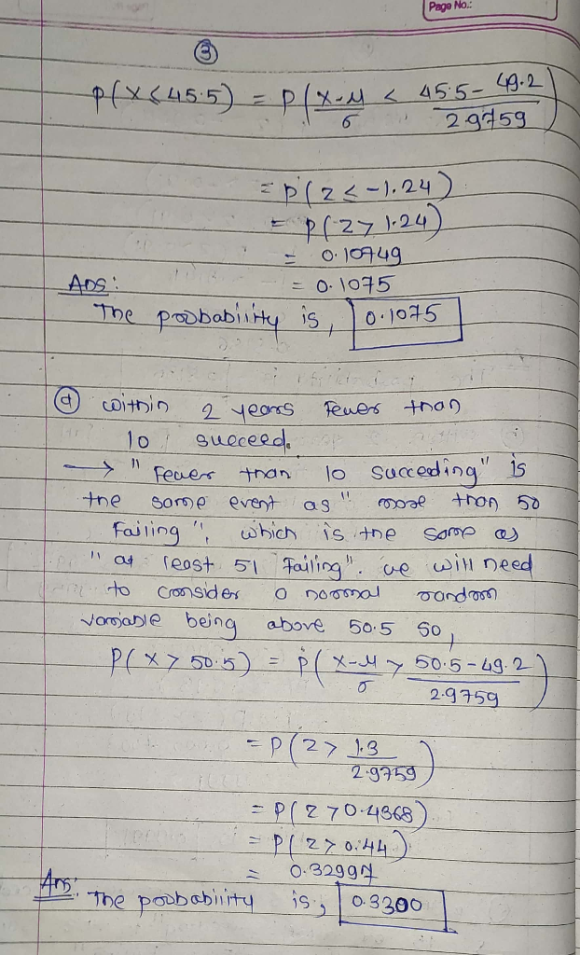 Page No.:
③
P(X<45.5) = P(X-μ/σ < 45.5-49.2/2.9759)
= P(Z<-1.24)
= P(Z>1.24)
= 0.10749
= 0.1075
Ans:
The probability is, 0.1075
ⓓ within 2 years fewer than
10 succeed.
→ "Fewer than 10 succeeding" is
the same event as "more than 50
Failing", which is the same as
"at least 51 Failing". we will need
to consider a normal random
variable being above 50.5 so,
P(X>50.5) = P(X-μ/σ > 50.5-49.2/2.9759)
= P(Z> 1.3/2.9759)
= P(Z>0.4368)
= P(Z>0.44)
= 0.32997
Ans:
The probability is, 0.3300